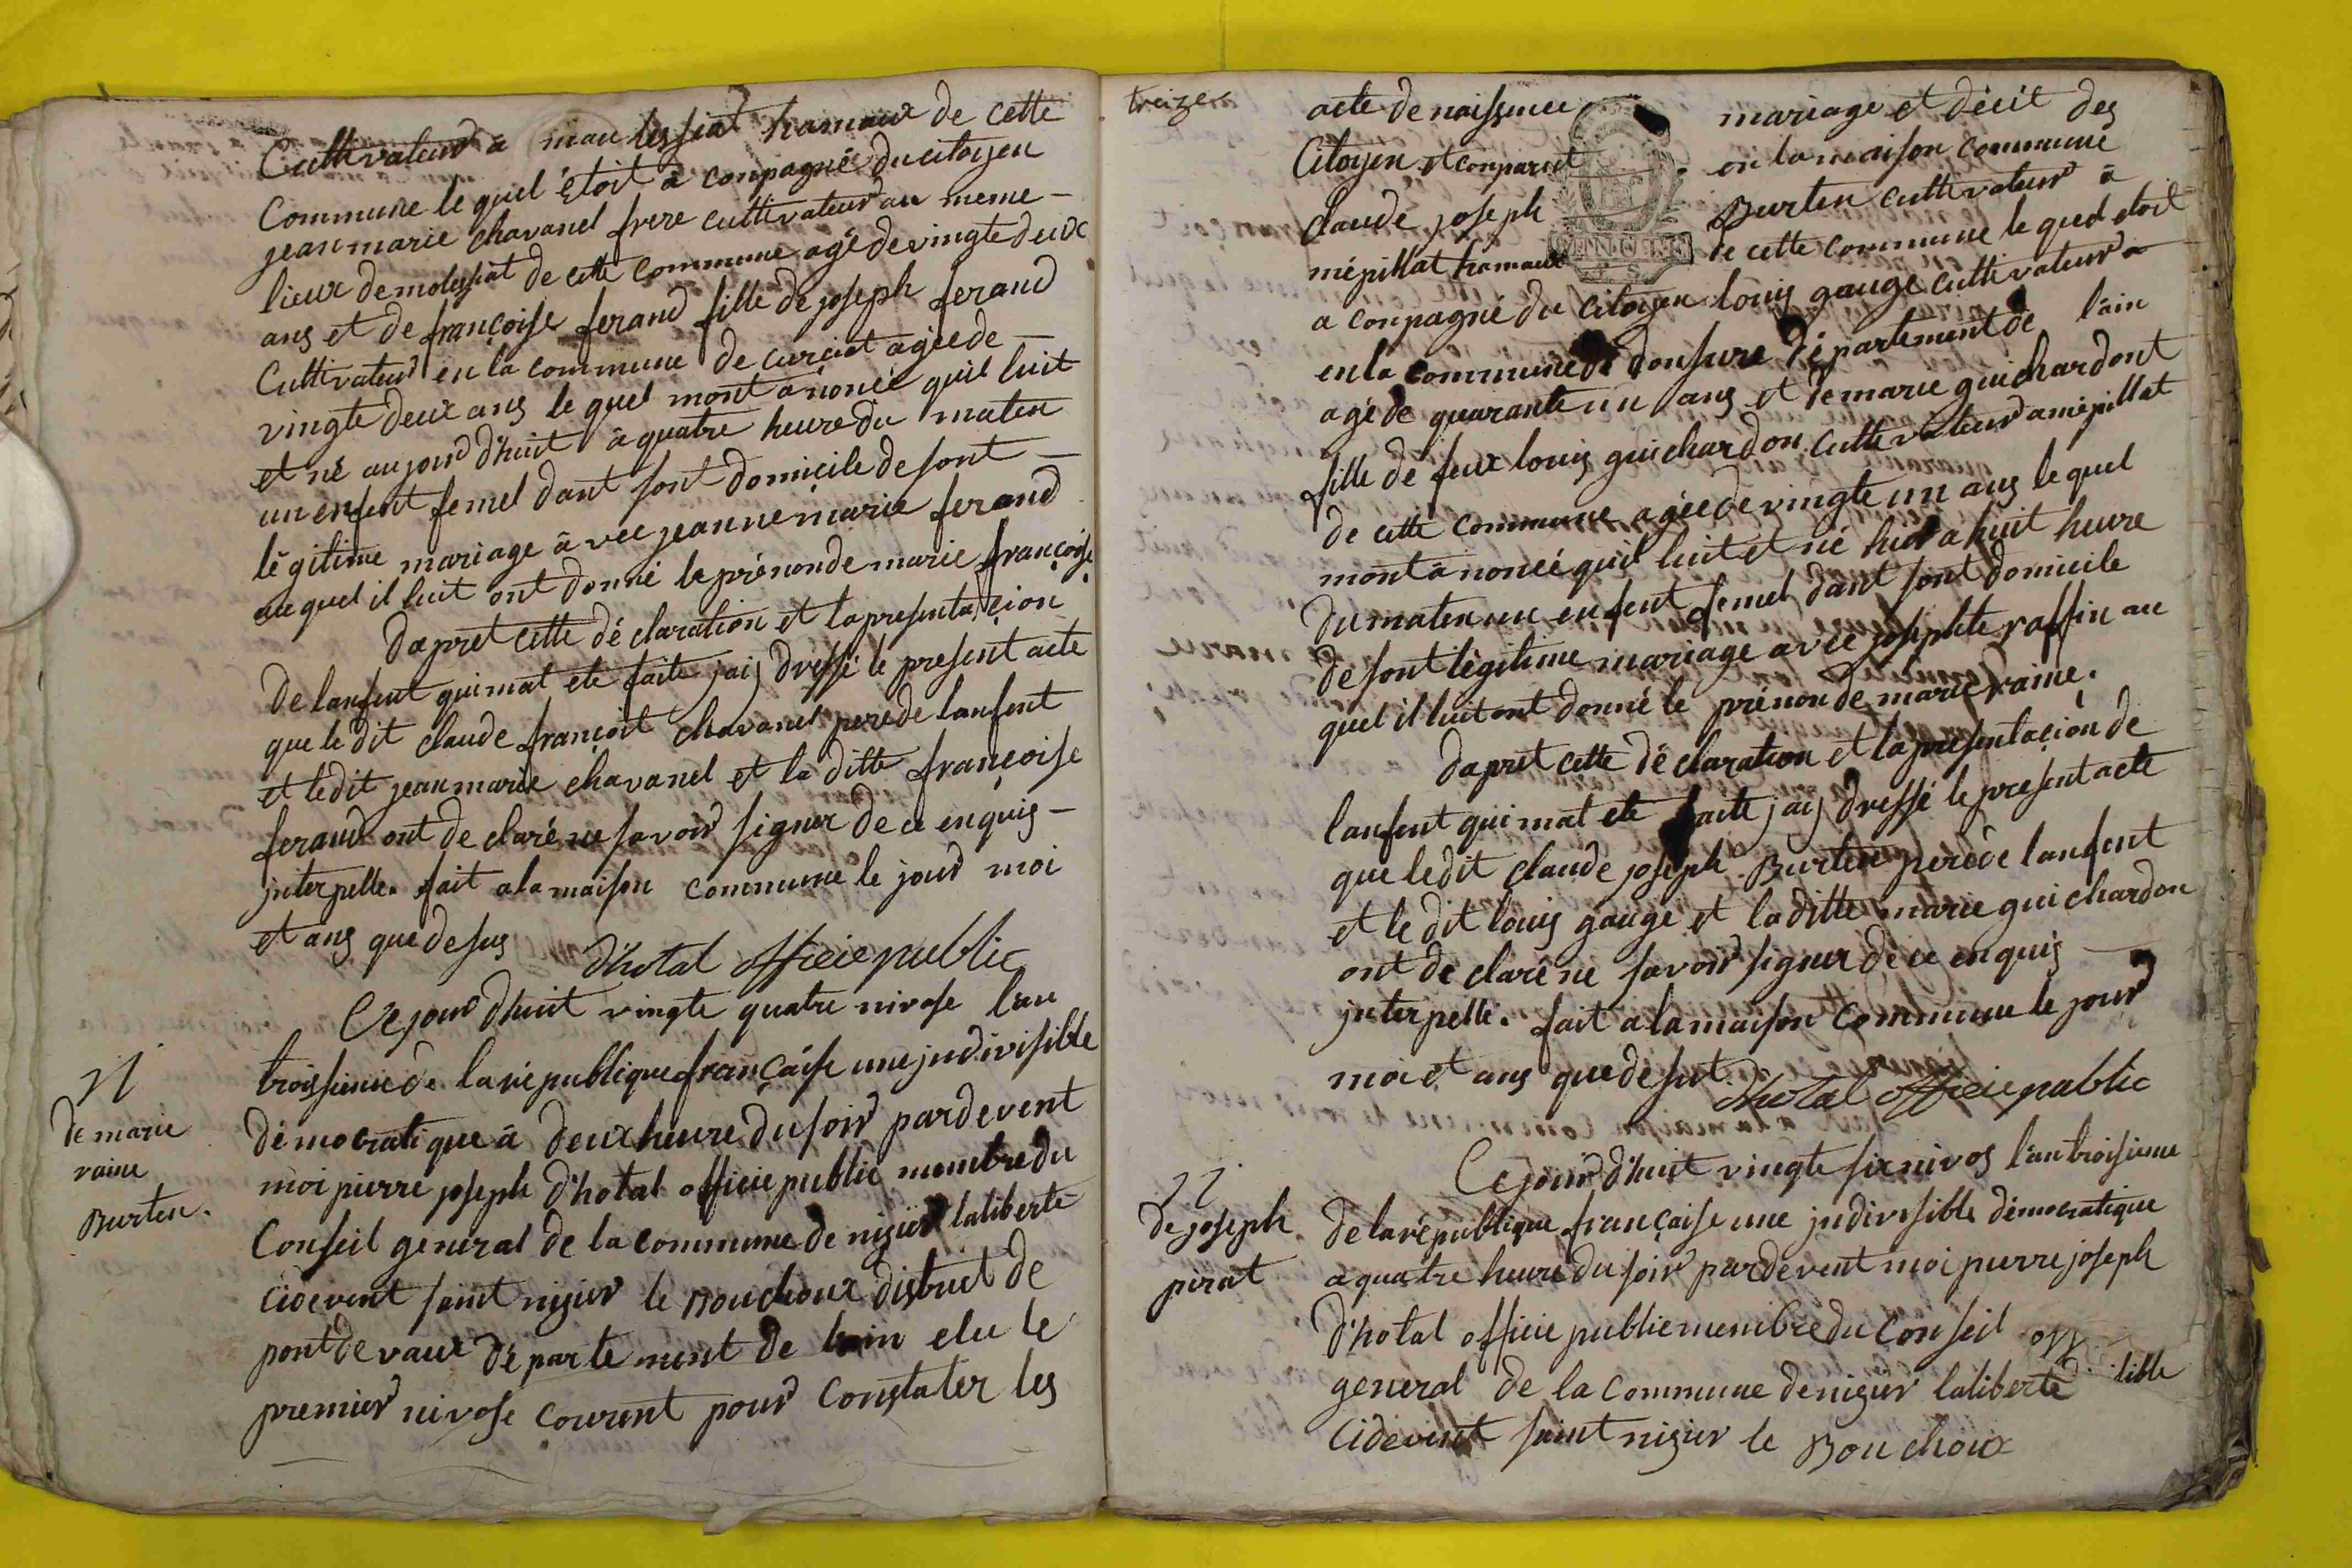 Cultivateur à mau lessiat hamaux de cette
Commune le quel étoit a conpagné du citoyen
jean marie chavanel frere cultivateur au meme
lieux de molesiat de cette commune agé de vingte deux
ans et de françoise ferand fille de joseph ferand
Cultivateur en la commune de curciat agée de
vingte deux ans le quel mont anoncé quil luit
et né aujourd'huit à quatre heure du maten
un enfent femel dant sont domicile de sont
légitime mariage avec jeanne marie ferand
au quel il luit ont donné le prénon de marie françoise
dapret cette déclaration et la presentacion
de lanfent qui mat ete faite jaij dressé le present acte
que le dit claude françoit chavanel pere de lanfent
et ledit jean marie chavanel et la ditte françoise
ferand ont de claré ne savoir signer de ce enquis
jnterpelle. fait a la maison commune le jour moi
et ans que desus
d'hotal officie public
Ce jour d'huit vingte quatre nivose l'an
troisieme de la république française une jndivisible
démocratique à deux heure du soir par devent
moi pierre joseph d'hotal officie public membre du
Conseil general de la commune de nisier laliberté
cidevent saint nisier le Bouchoux district de
pont de vaux département de lain elu le
premier nivose courent pour constater les
11
de marie
raine
Burten.
treize
acte de naissance mariage et décét des
Citoyen et conparut en la maison commune
claude joseph Burten cultivateur à
mépillat hamaux de cette commune le quel etoit
a conpagné du citoyen louis gauge cultivateur a
en la commune de donsure département de l'ain
agé de quarante un ans et de marie guichardont
fille de feux louis guichardon cultivateur a mépillat
de cette commune agée de vingte un ans le quel
mont anoncé quil luit et né hier a huit heure
du maten un enfent femel dant sont domicile
de sont légitime mariage avec josephte raffin au
quel il luit ont donné le prénon de marie raine.
dapret cette déclaration et la presentacion de
lanfent qui mat ete faite jaij dressé le present acte
que ledit claude joseph Burten pere de lanfent
et le dit louis gauge et la ditte marie guichardon
ont de claré ne savoir signer de ce enquis
jnterpelle. fait a la maison commune le jour
moi et ans que desut.
d'hotal officie public
Ce jour d'huit vingte six nivos l'an troisieme
de la république française une jndivisible démocratique
a quatre heure du soir par devent moi pierre joseph
d'hotal officie public membre du conseil
general de la commune de nisier laliberté
cidevent saint nisier le Bouchoux
12
de joseph
pirat